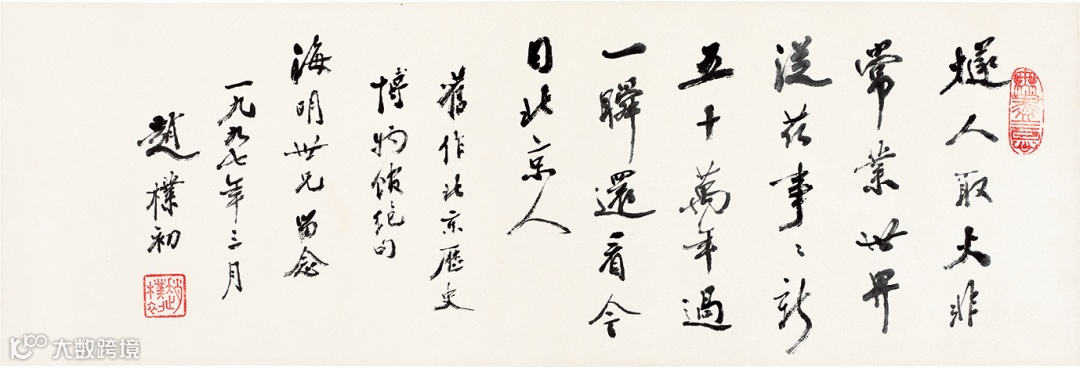 燧人取火非
常業世界
從茲事〻新
五十萬年過
一瞬還看今
日北京人
舊作北京歷史
博物館絕句
海明世兄留念
一九九七年三月
趙樸初
趙樸初
大数跨境